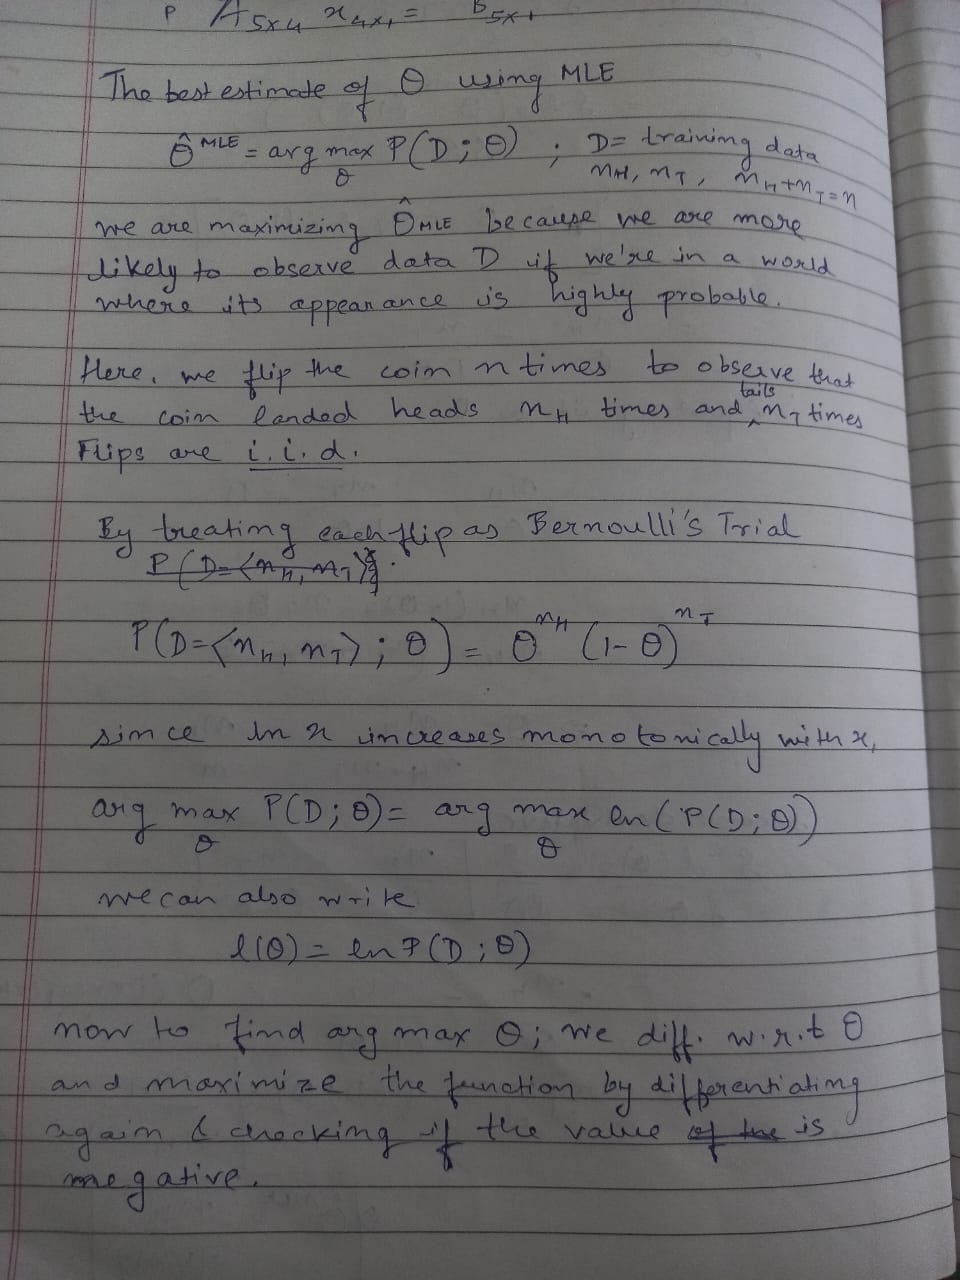 P A5x4 x4x1 = B5x1
The best estimate of θ using MLE
θ̂ MLE = arg max P(D ; θ) ; D = training data
θ nH, nT, nH+nT=n
we are maximizing θ̂MLE because we are more
likely to observe data D if we're in a world
where its appearance is highly probable.
Here, we flip the coin n times to observe that
the coin landed heads nH times and tails nT times
Flips are i.i.d.
By treating each flip as Bernoulli's Trial
P(D=(nH, nT)}
P(D=⟨nH, nT⟩; θ) = θ^nH (1-θ)^nT
since ln x increases monotonically with x,
arg max P(D; θ) = arg max ln(P(D; θ))
θ θ
we can also write
l(θ) = ln P(D; θ)
now to find arg max θ; we diff. w.r.t θ
and maximize the function by differentiating
again & checking if the value of the is
negative.